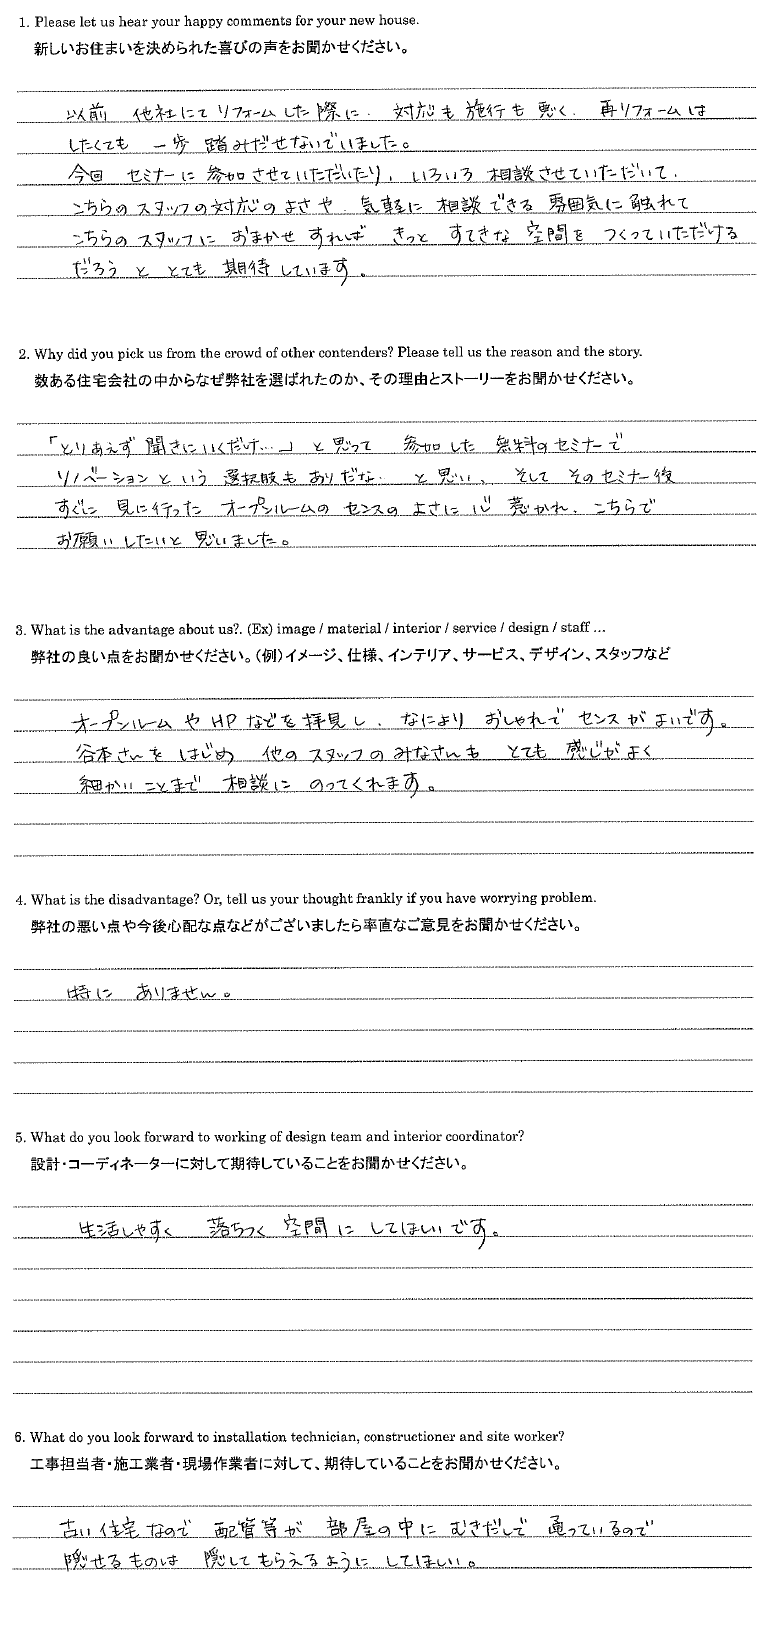 1. Please let us hear your happy comments for your new house.
新しいお住まいを決められた喜びの声をお聞かせください。
以前 他社にてリフォームした際に、対応も施行も悪く、再リフォームは
したくても 一歩 踏みだせないでいました。
今回 セミナーに参加させていただいたり、いろいろ相談させていただいて、
こちらのスタッフの対応のよさや、気軽に相談できる雰囲気に触れて
こちらのスタッフに おまかせすれば きっと すてきな空間を つくっていただける
だろう と とても 期待しています。
2. Why did you pick us from the crowd of other contenders? Please tell us the reason and the story.
数ある住宅会社の中からなぜ弊社を選ばれたのか、その理由とストーリーをお聞かせください。
「とりあえず聞きにいくだけ…」と思って 参加した 無料のセミナーで
リノベーションという 選択肢もありだな… と思い、そして そのセミナー後
すぐに 見に行った オープンルームの センスの よさに 心 惹かれ、こちらで
お願いしたいと思いました。
3. What is the advantage about us?. (Ex) image / material / interior / service / design / staff ...
弊社の良い点をお聞かせください。(例)イメージ、仕様、インテリア、サービス、デザイン、スタッフなど
オープンルームや HPなどを拝見し、なにより おしゃれで センスがよいです。
谷本さんを はじめ 他の スタッフのみなさんも とても 感じがよく
細かいことまで 相談に のってくれます。
4. What is the disadvantage? Or, tell us your thought frankly if you have worrying problem.
弊社の悪い点や今後心配な点などがございましたら率直なご意見をお聞かせください。
特に ありません。
5. What do you look forward to working of design team and interior coordinator?
設計・コーディネーターに対して期待していることをお聞かせください。
生活しやすく 落ちつく 空間に してほしいです。
6. What do you look forward to installation technician, constructioner and site worker?
工事担当者・施工業者・現場作業者に対して、期待していることをお聞かせください。
古い住宅なので 配管等が 部屋の中に むきだしで 通っているので
隠せるものは 隠してもらえるように してほしい。